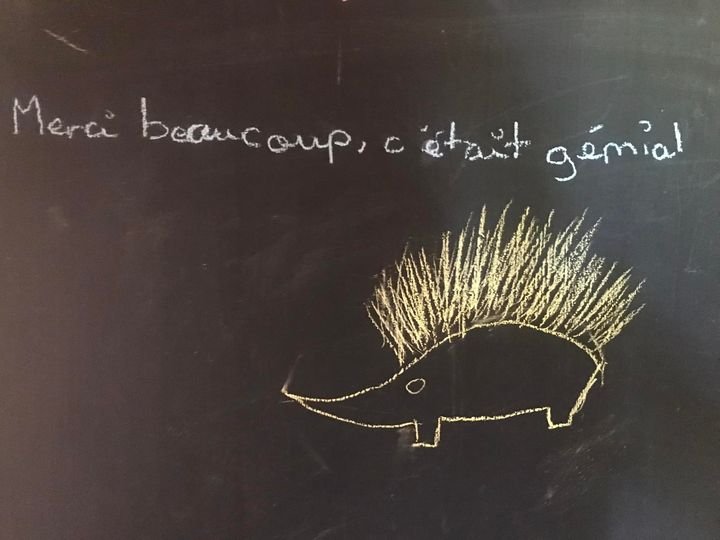 Merci beaucoup, c'était génial